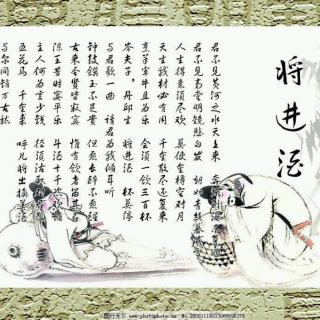 将进酒
君不见黄河之水天上来 奔
君不见高堂明镜悲白发 朝如青丝暮
人生得意须尽欢 莫使金樽空对月
天生我材必有用 千金散尽还复来
烹羊宰牛且为乐 会须一饮三百杯
岑夫子,丹邱生 将进酒 杯莫停
与君歌一曲 请君为我倾耳听
钟鼓馔玉不足贵 但愿长醉不愿醒
古来圣贤皆寂寞 惟有饮者留其名
陈王昔时宴平乐 斗酒十千恣
主人何为言少钱 径须沽取
五花马 千金裘 呼儿将出换美酒
与尔同销万古愁
图行天下 www.photophoto.cn